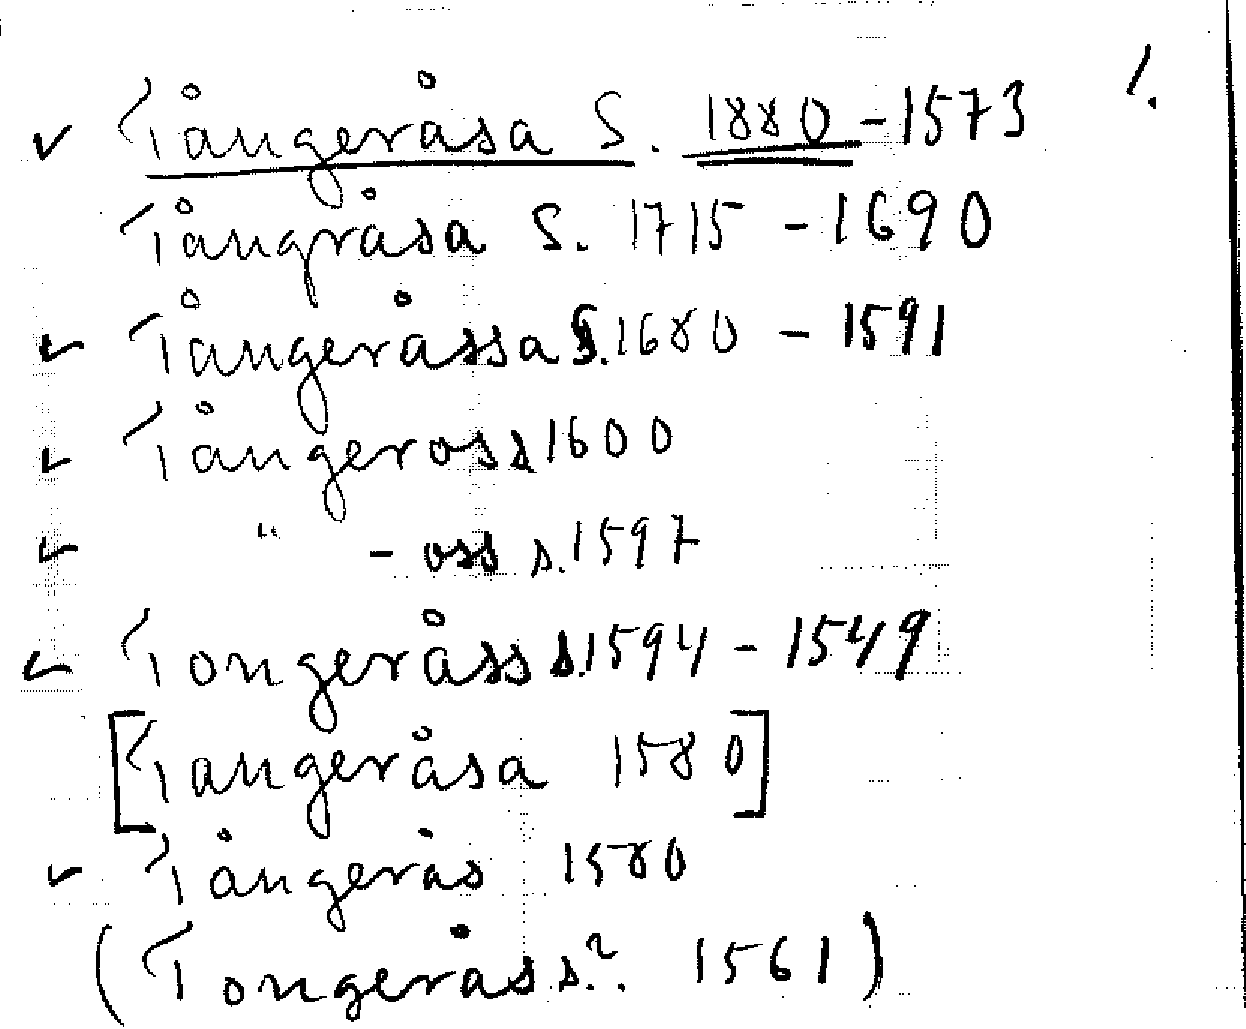 ✓ Tångeråsa S. 1880 - 1573 1.
Tångråsa S. 1715 - 1690
✓ Tångeråssa S. 1680 - 1591
✓ Tångeross s 1600
✓ " - oss s. 1597
✓ Tongeråss s. 1594 - 1549
[Tangeråsa 1580]
✓ Tångerås 1580
(Tongerås s.?. 1561)